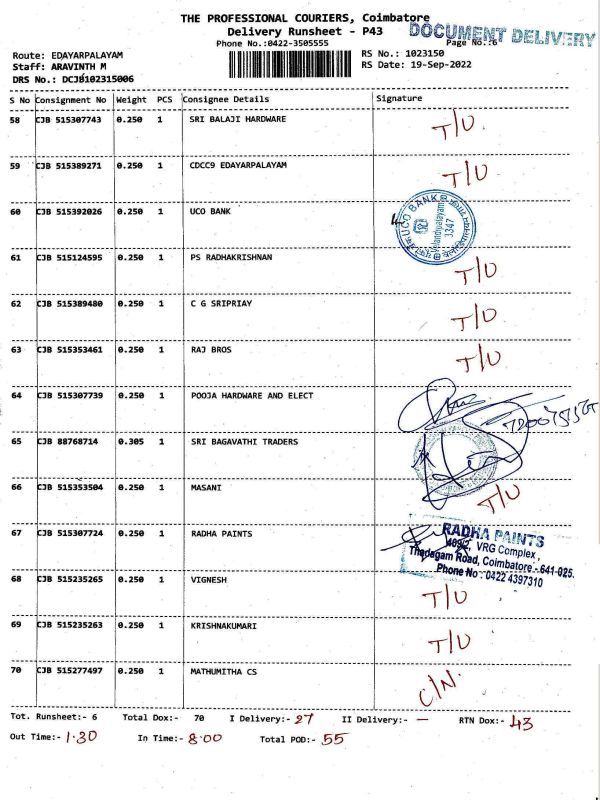 THE PROFESSIONAL COURIERS, Coimbatore
Delivery Runsheet - P43
DOCUMENT DELIVERY
Phone No.:0422-3505555
Page No.:6
Route: EDAYARPALAYAM
RS No.: 1023150
Staff: ARAVINTH M
RS Date: 19-Sep-2022
DRS No.: DCJB102315006
S No Consignment No Weight PCS Consignee Details Signature
58 CJB 515307743 0.250 1 SRI BALAJI HARDWARE T/U
59 CJB 515389271 0.250 1 CDCC9 EDAYARPALAYAM T/U
60 CJB 515392026 0.250 1 UCO BANK
UCO BANK
Velandipalayam
3347
61 CJB 515124595 0.250 1 PS RADHAKRISHNAN T/U
62 CJB 515389480 0.250 1 C G SRIPRIAY T/U
63 CJB 515353461 0.250 1 RAJ BROS T/U
64 CJB 515307739 0.250 1 POOJA HARDWARE AND ELECT
65 CJB 88768714 0.305 1 SRI BAGAVATHI TRADERS
66 CJB 515353504 0.250 1 MASANI T/U
67 CJB 515307724 0.250 1 RADHA PAINTS
RADHA PAINTS
409/2, VRG Complex,
Thadagam Road, Coimbatore - 641-025.
Phone No : 0422 4397310
68 CJB 515235265 0.250 1 VIGNESH T/U
69 CJB 515235263 0.250 1 KRISHNAKUMARI T/U
70 CJB 515277497 0.250 1 MATHUMITHA CS C/N.
Tot. Runsheet:- 6 Total Dox:- 70 I Delivery:- 27 II Delivery:- — RTN Dox:- 43
Out Time:- 1.30 In Time:- 8.00 Total POD:- 55